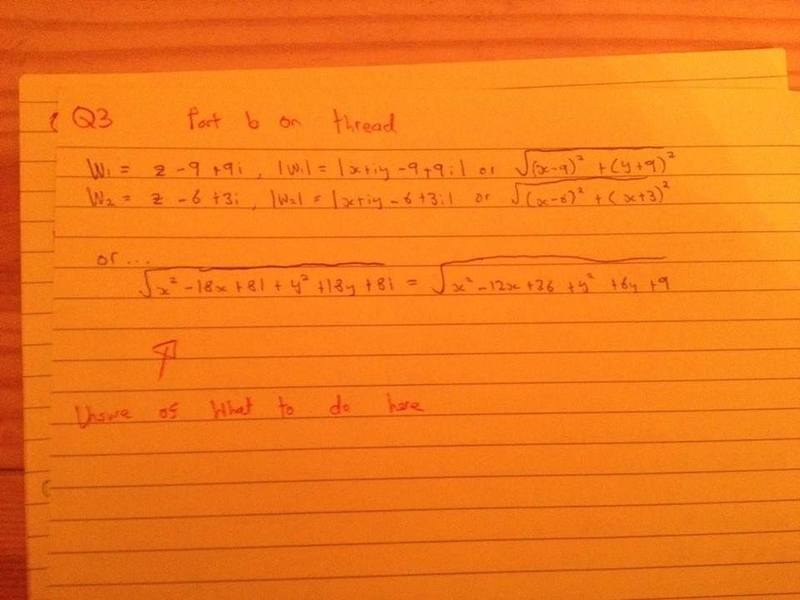 Q3 Part b on thread
W₁ = z - 9 + 9i , |W₁| = |x+iy - 9+9i| or √(x-9)² + (y+9)²
W₂ = z - 6 + 3i , |W₂| = |x+iy - 6+3i| or √(x-6)² + (x+3)²
or ...
√x² - 18x + 81 + y² + 18y + 81 = √x² - 12x + 36 + y² + 6y + 9
Unsure of What to do here